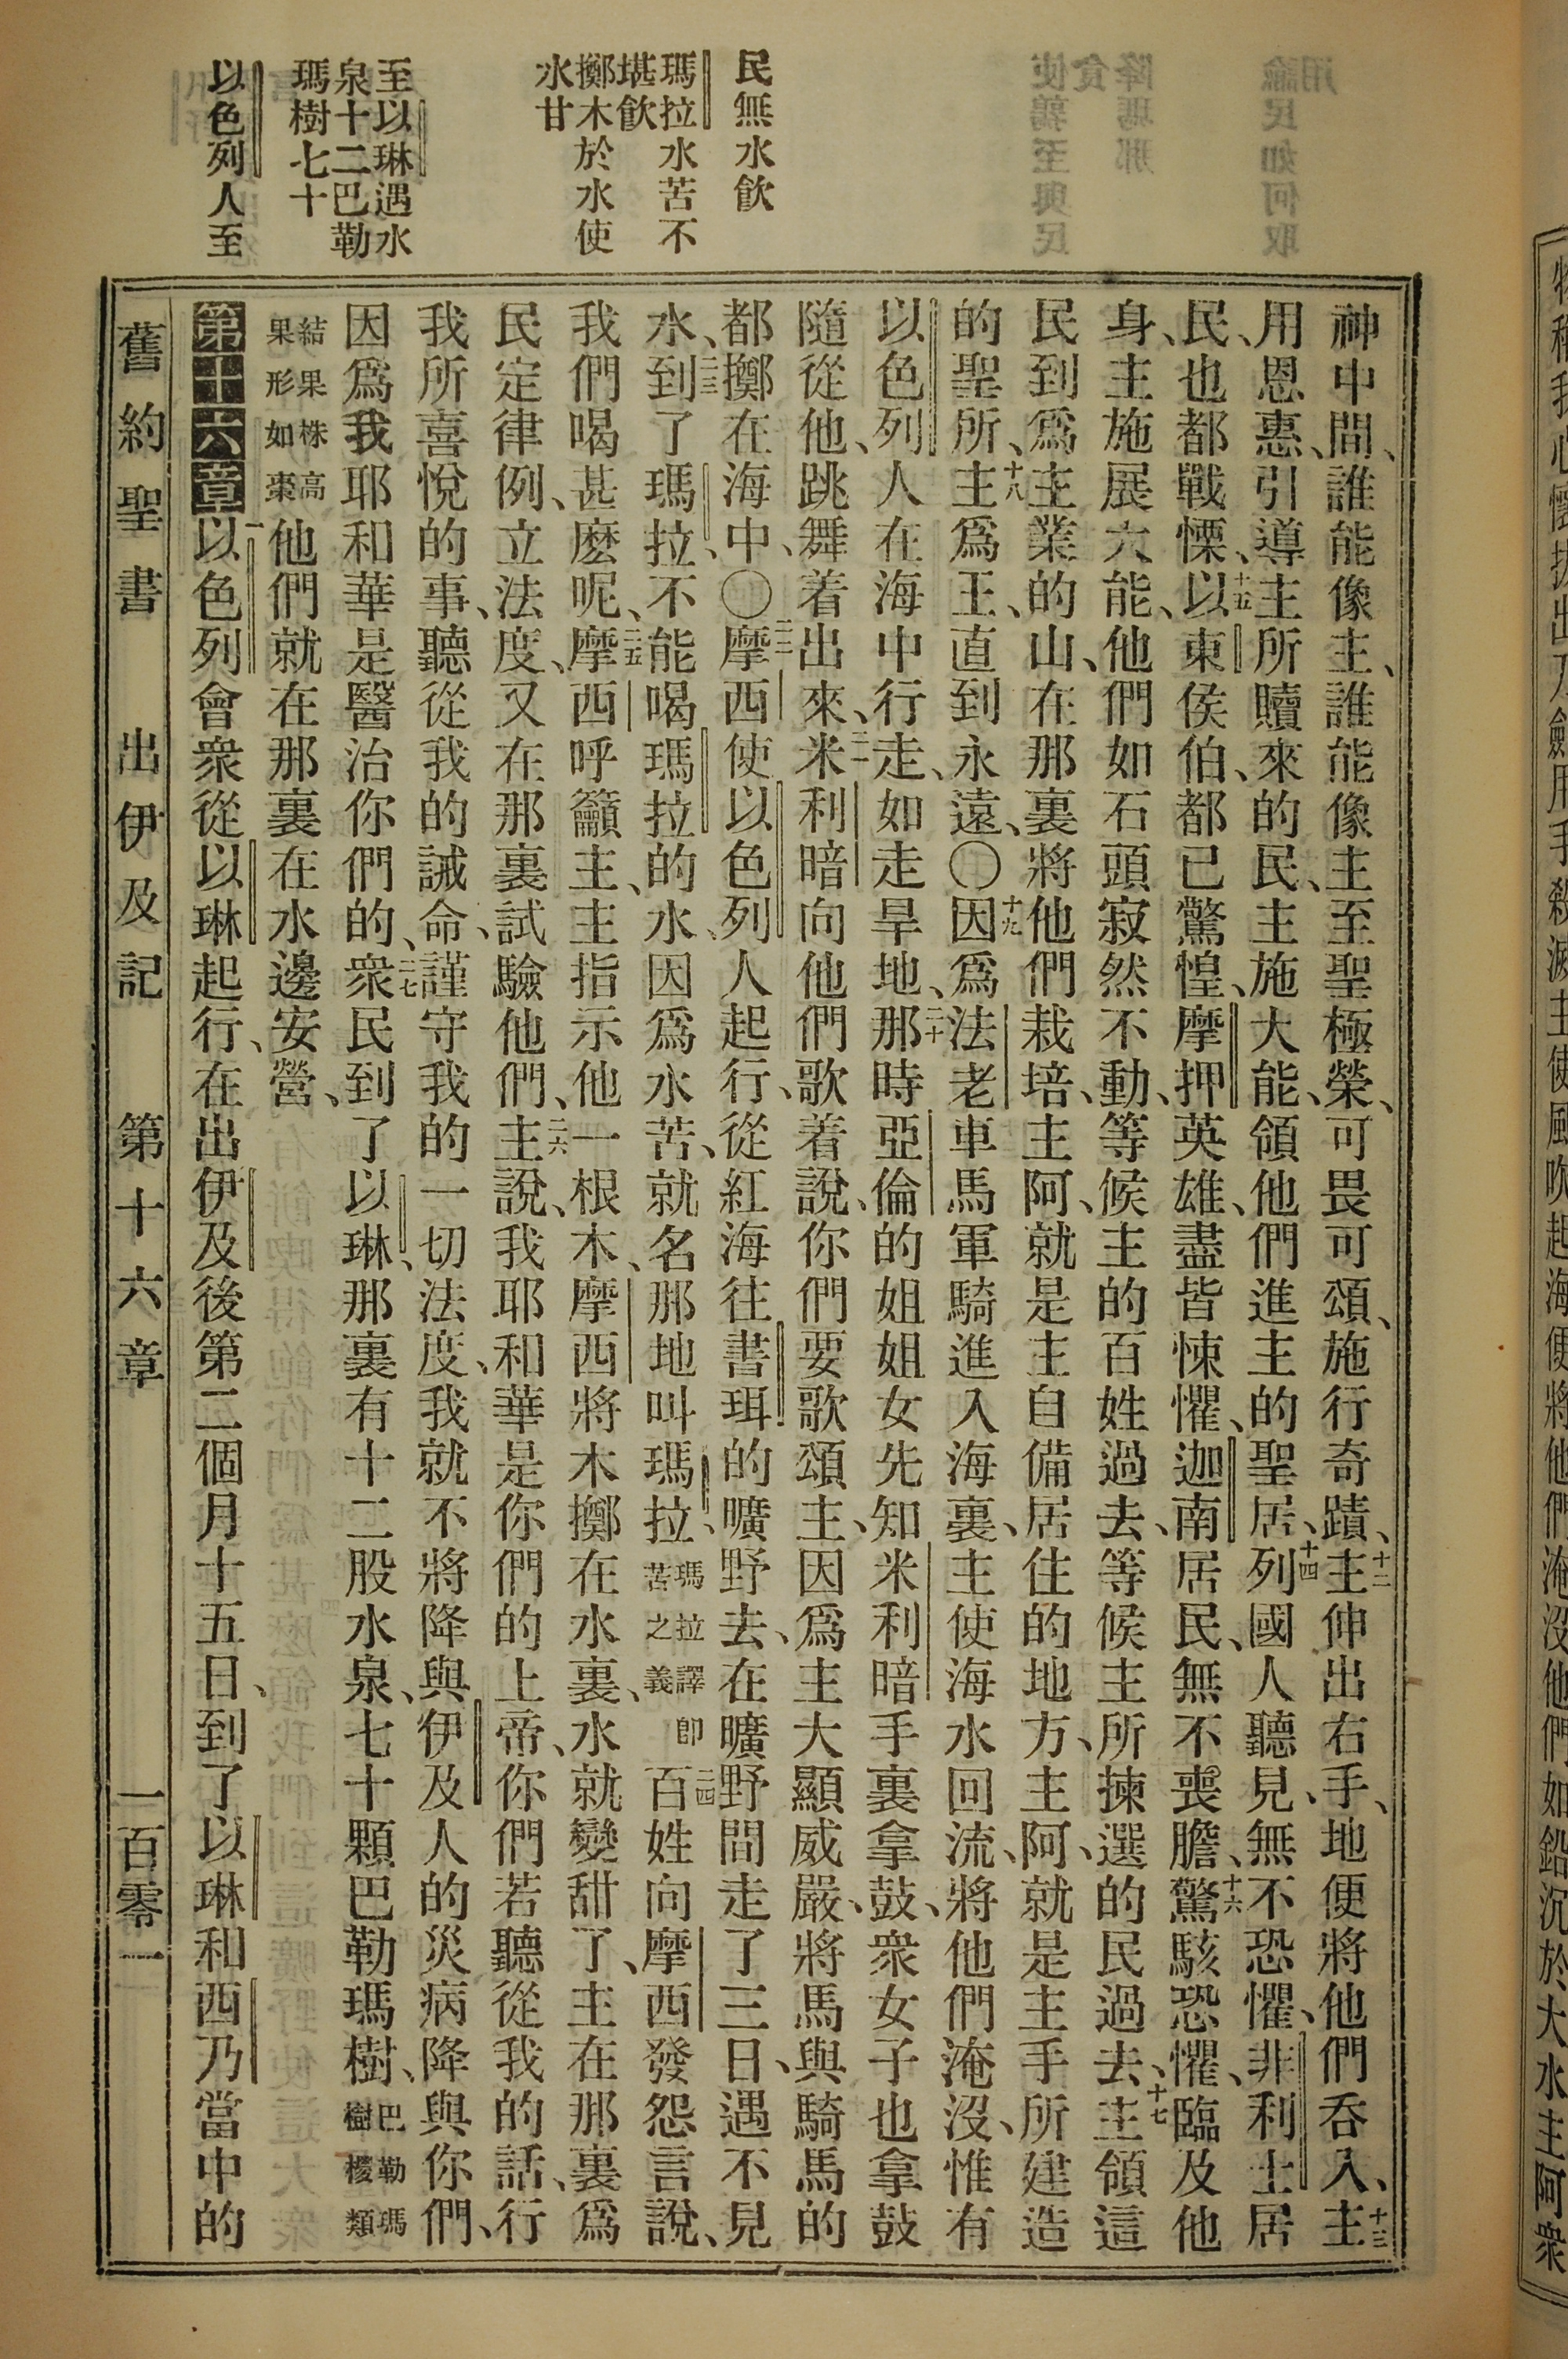 民無水飲
瑪拉水苦不
堪飲
擲木於水使
水甘
至以琳遇水
泉十二巴勒
瑪樹七十
以色列人至
神中間、誰能像主、誰能像主至聖極榮、可畏可頌、施行奇蹟、十二主伸出右手、地便將他們吞入、十三主
用恩惠、引導主所贖來的民、主施大能、領他們進主的聖居、十四列國人聽見、無不恐懼、非利士居
民、也都戰慄、十五以東侯伯、都已驚惶、摩押英雄、盡皆悚懼、迦南居民、無不喪膽、十六驚駭恐懼、臨及他
身、主施展大能、他們如石頭寂然不動、等候主的百姓過去、等候主所揀選的民過去、十七主領這
民到爲主業的山、在那裏將他們栽培、主阿、就是主自備居住的地方、主阿、就是主手所建造
的聖所、十八主爲王、直到永遠、〇十九因爲法老車馬軍騎進入海裏、主使海水回流、將他們淹沒、惟有
以色列人在海中行走、如走旱地、二十那時亞倫的姐姐女先知米利暗手裏拿鼓、衆女子也拿鼓
隨從他、跳舞着出來、二一米利暗向他們歌着說、你們要歌頌主、因爲主大顯威嚴、將馬與騎馬的
都擲在海中、〇二二摩西使以色列人起行、從紅海往書珥的曠野去、在曠野間走了三日、遇不見
水、二三到了瑪拉、不能喝瑪拉的水、因爲水苦、就名那地叫瑪拉、瑪拉譯卽苦之義二四百姓向摩西發怨言說、
我們喝甚麽呢、二五摩西呼籲主、主指示他一根木、摩西將木擲在水裏、水就變甜了、主在那裏爲
民定律例、立法度、又在那裏試驗他們、二六主說、我耶和華是你們的上帝、你們若聽從我的話、行
我所喜悅的事、聽從我的誡命、謹守我的一切法度、我就不將降與伊及人的災病降與你們、
因爲我耶和華是醫治你們的、二七衆民到了以琳、那裏有十二股水泉、七十顆巴勒瑪樹、巴勒瑪樹椶類
結果株高果形如棗他們就在那裏在水邊安營、
第十六章一以色列會衆從以琳起行、在出伊及後第二個月十五日、到了以琳和西乃當中的
舊約聖書 出伊及記 第十六章 一百零一